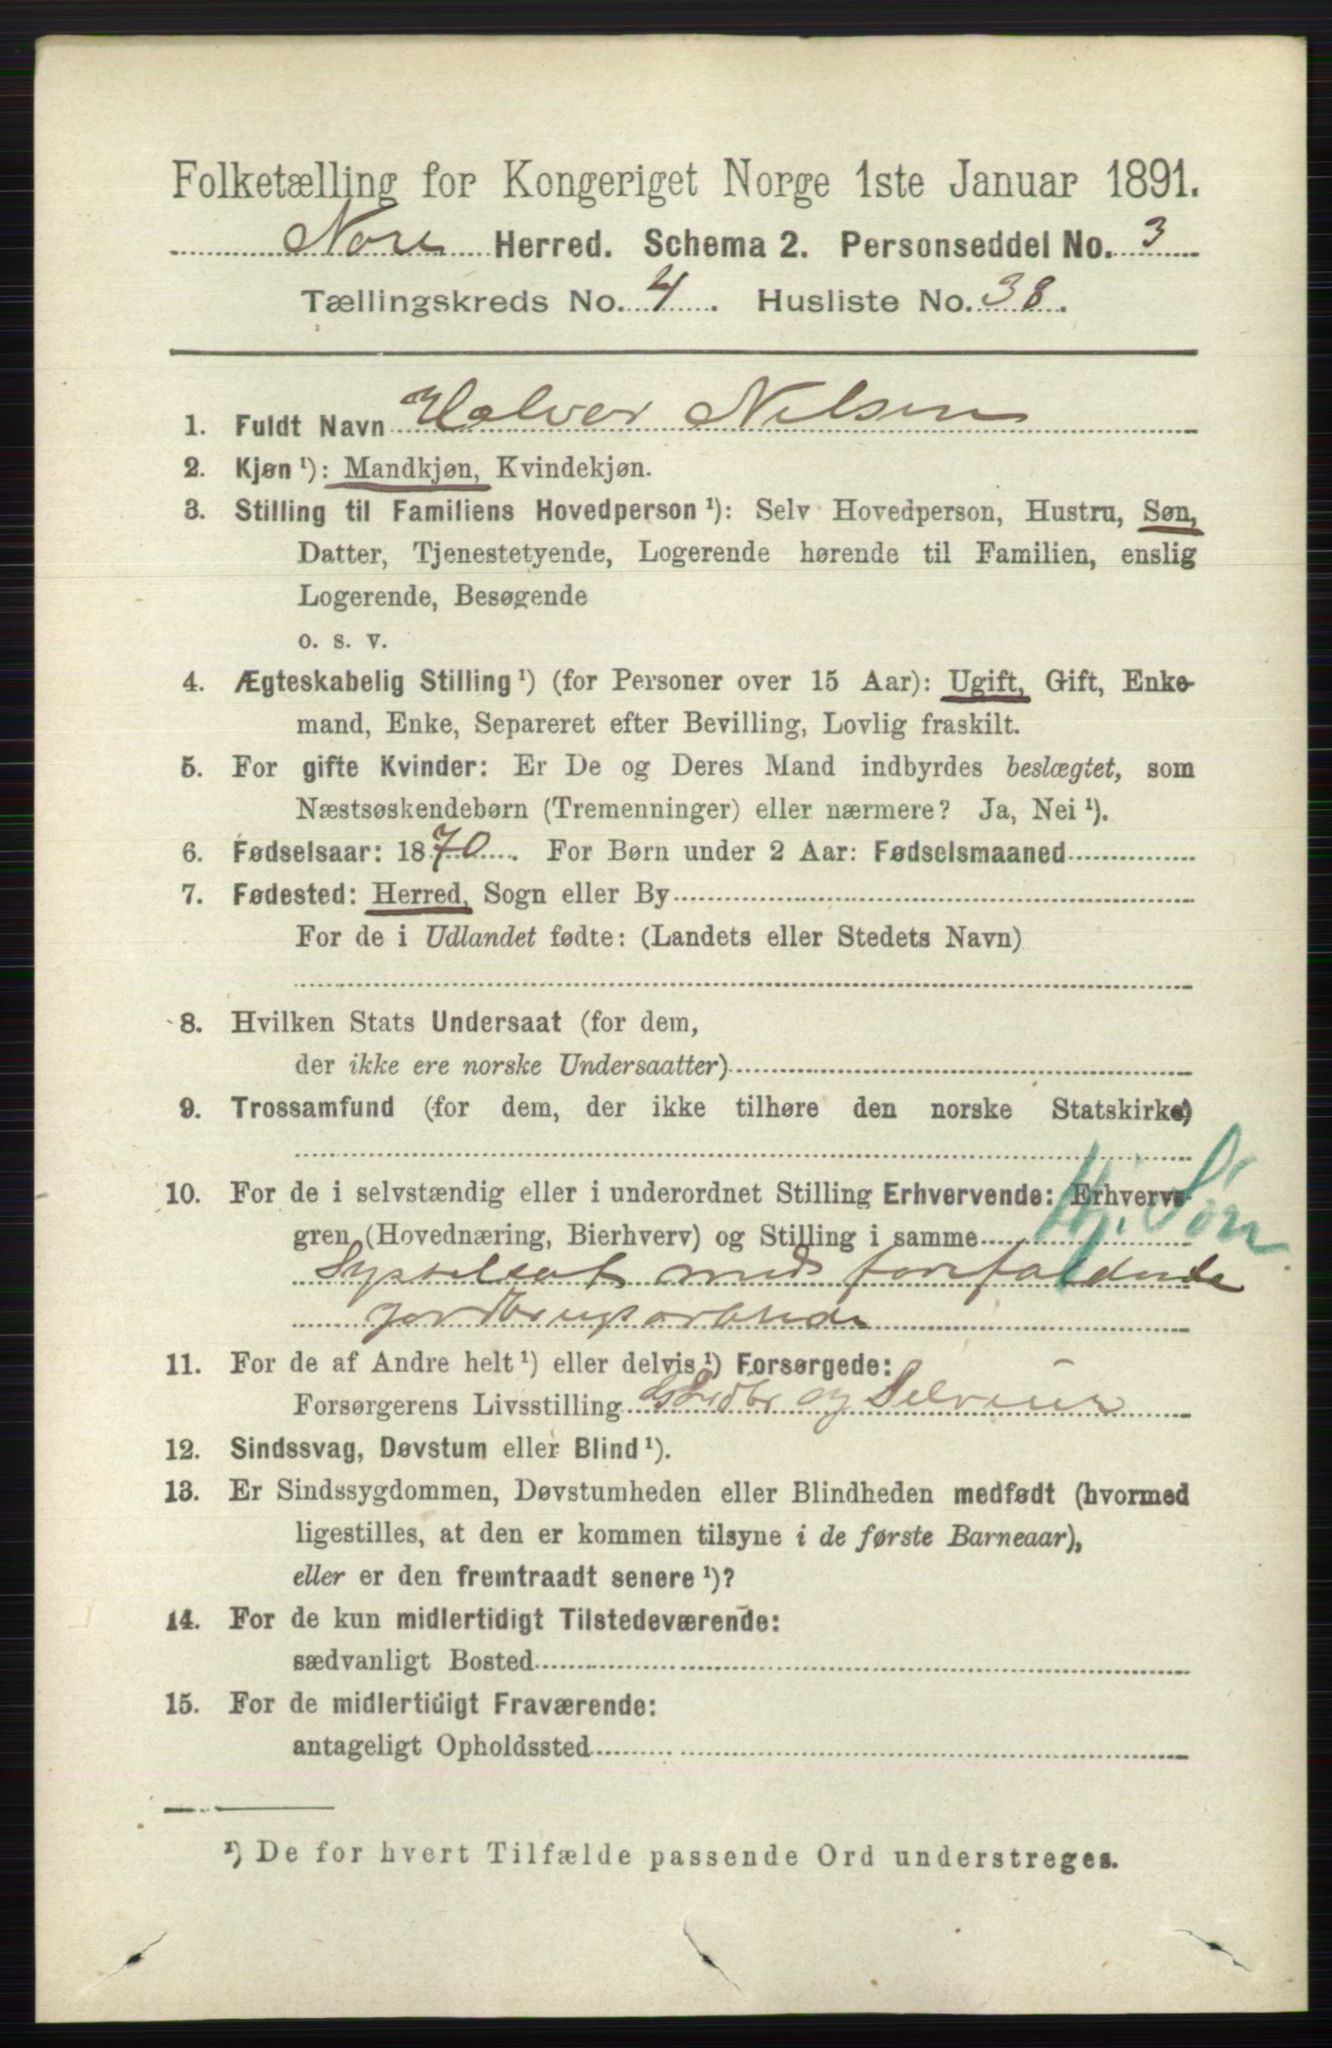 Folketælling for Kongeriget Norge 1ste Januar 1891.
Nore Herred. Schema 2. Personseddel No. 3
Tællingskreds No. 4. Husliste No. 38.
1. Fuldt Navn Halvor Nilsen
2. Kjøn ¹): Mandkjøn, Kvindekjøn.
3. Stilling til Familiens Hovedperson ¹): Selv Hovedperson, Hustru, Søn,
Datter, Tjenestetyende, Logerende hørende til Familien, enslig
Logerende, Besøgende
o. s. v.
4. Ægteskabelig Stilling ¹) (for Personer over 15 Aar): Ugift, Gift, Enke-
mand, Enke, Separeret efter Bevilling, Lovlig fraskilt.
5. For gifte Kvinder: Er De og Deres Mand indbyrdes beslægtet, som
Næstsøskendebørn (Tremenninger) eller nærmere? Ja, Nei ¹).
6. Fødselsaar: 1870. For Børn under 2 Aar: Fødselsmaaned
7. Fødested: Herred, Sogn eller By
For de i Udlandet fødte: (Landets eller Stedets Navn)
8. Hvilken Stats Undersaat (for dem,
der ikke ere norske Undersaatter)
9. Trossamfund (for dem, der ikke tilhøre den norske Statskirke)
10. For de i selvstændig eller i underordnet Stilling Erhvervende: Erhvervs-
gren (Hovednæring, Bierhverv) og Stilling i samme Hj. Søn
Sysselsat med forefaldende
jordbrugsarbeide
11. For de af Andre helt ¹) eller delvis ¹) Forsørgede:
Forsørgerens Livsstilling Gårdbr og Selveier
12. Sindssvag, Døvstum eller Blind ¹).
13. Er Sindssygdommen, Døvstumheden eller Blindheden medfødt (hvormed
ligestilles, at den er kommen tilsyne i de første Barneaar),
eller er den fremtraadt senere ¹)?
14. For de kun midlertidigt Tilstedeværende:
sædvanligt Bosted
15. For de midlertidigt Fraværende:
antageligt Opholdssted
¹) De for hvert Tilfælde passende Ord understreges.